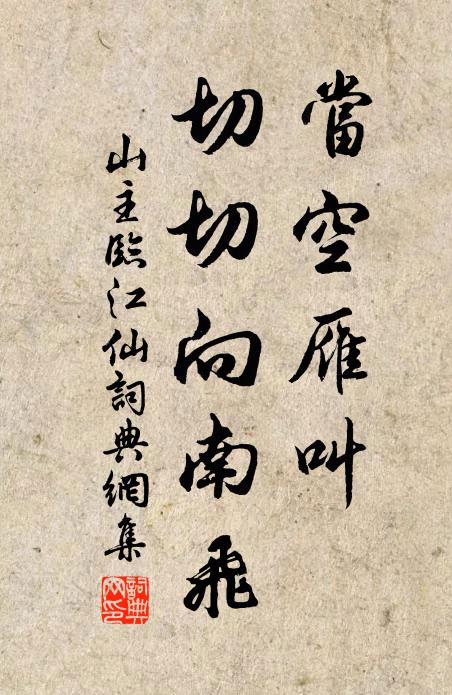 當空雁叫
切切向南飛
山主臨江仙詞典網集
詞典網印